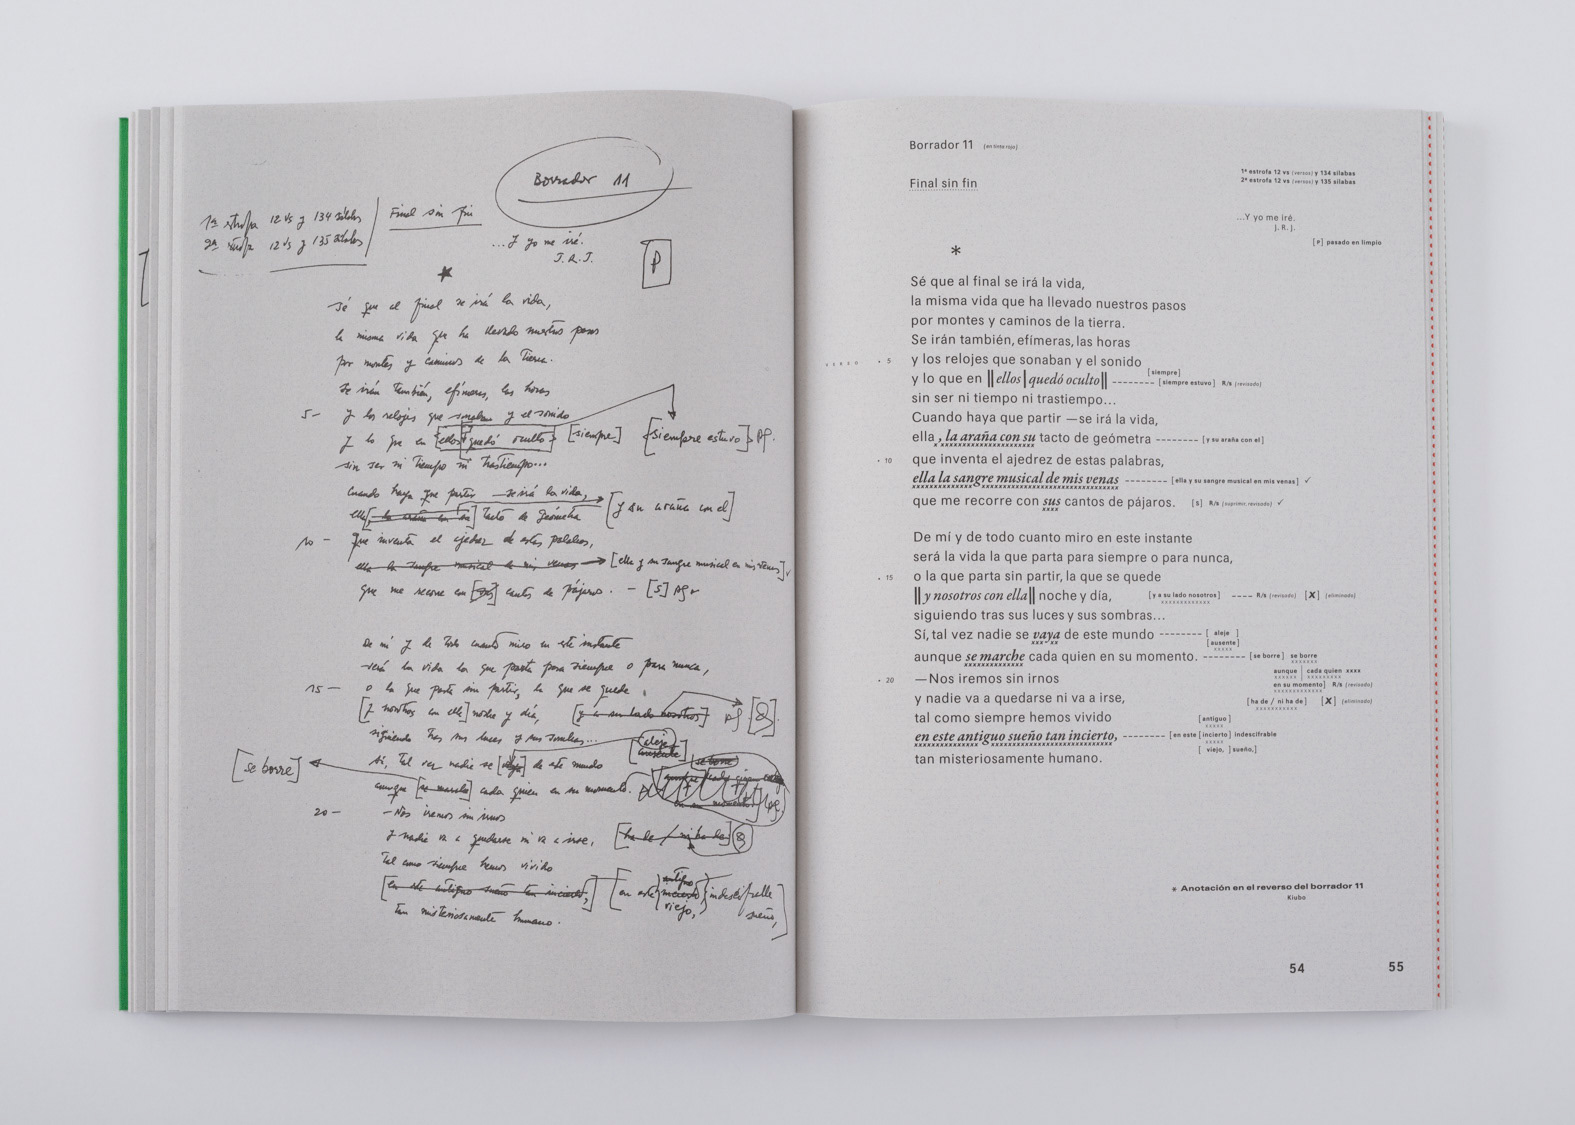 Borrador 11
1ª estrofa 12 vs y 134 sílabas
2ª estrofa 12 vs y 135 sílabas
Final sin fin
...Y yo me iré.
J. R. J.
P
Sé que al final se irá la vida,
la misma vida que ha llevado nuestros pasos
por montes y caminos de la tierra.
Se irán también, efímeras, las horas
5- y los relojes que sonaban y el sonido
y lo que en [ellos] [quedó oculto] [siempre] [siempre estuvo]
sin ser ni tiempo ni trastiempo...
Cuando haya que partir —se irá la vida,
ella [, la araña con su] tacto de geómetra [y su araña con el]
10- que inventa el ajedrez de estas palabras,
ella la sangre musical de mis venas [ella y su sangre musical en mis venas]
que me recorre con [sus] cantos de pájaros. - [S]
De mí y de todo cuanto miro en este instante
será la vida la que parta para siempre o para nunca,
15- o la que parta sin partir, la que se quede
[y nosotros con ella] noche y día, [y a su lado nosotros]
siguiendo tras sus luces y sus sombras...
Sí, tal vez nadie se [vaya] de este mundo [aleje ausente]
[se borre] aunque [se marche] cada quien en su momento.
20- —Nos iremos sin irnos
y nadie va a quedarse ni va a irse, [ha de / ni ha de]
tal como siempre hemos vivido
[en este antiguo sueño tan incierto,] [en este antiguo incierto viejo, indescifrable sueño,]
tan misteriosamente humano.
Borrador 11 [en tinta rojo]
Final sin fin
1ª estrofa 12 vs (versos) y 134 sílabas
2ª estrofa 12 vs (versos) y 135 sílabas
...Y yo me iré.
J. R. J.
[P] pasado en limpio
*
Sé que al final se irá la vida,
la misma vida que ha llevado nuestros pasos
por montes y caminos de la tierra.
Se irán también, efímeras, las horas
5 y los relojes que sonaban y el sonido
[siempre]
y lo que en ||ellos|quedó oculto|| -------- [siempre estuvo] R/s (revisado)
sin ser ni tiempo ni trastiempo...
Cuando haya que partir —se irá la vida,
ella , la araña con su tacto de geómetra -------- [y su araña con el]
10 que inventa el ajedrez de estas palabras,
ella la sangre musical de mis venas -------- [ella y su sangre musical en mis venas] ✓
que me recorre con sus cantos de pájaros. [s] R/s (suprimir, revisado) ✓
De mí y de todo cuanto miro en este instante
será la vida la que parta para siempre o para nunca,
15 o la que parta sin partir, la que se quede
||y nosotros con ella|| noche y día, [y a su lado nosotros] ---- R/s (revisado) [X] (eliminado)
siguiendo tras sus luces y sus sombras...
Sí, tal vez nadie se vaya de este mundo -------- [ aleje ]
[ausente]
aunque se marche cada quien en su momento. -------- [se borre] se borre
aunque | cada quien xxxx
20 —Nos iremos sin irnos
en su momento] R/s (revisado)
y nadie va a quedarse ni va a irse, [ha de / ni ha de] [X] (eliminado)
tal como siempre hemos vivido
[antiguo]
en este antiguo sueño tan incierto, -------- [en este [incierto] indescifrable
[ viejo, ] sueño,]
tan misteriosamente humano.
* Anotación en el reverso del borrador 11
Kiubo
54 55